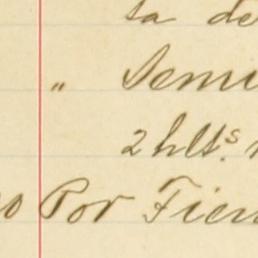 ta de
" Semi
2 hlts.
Por Fien